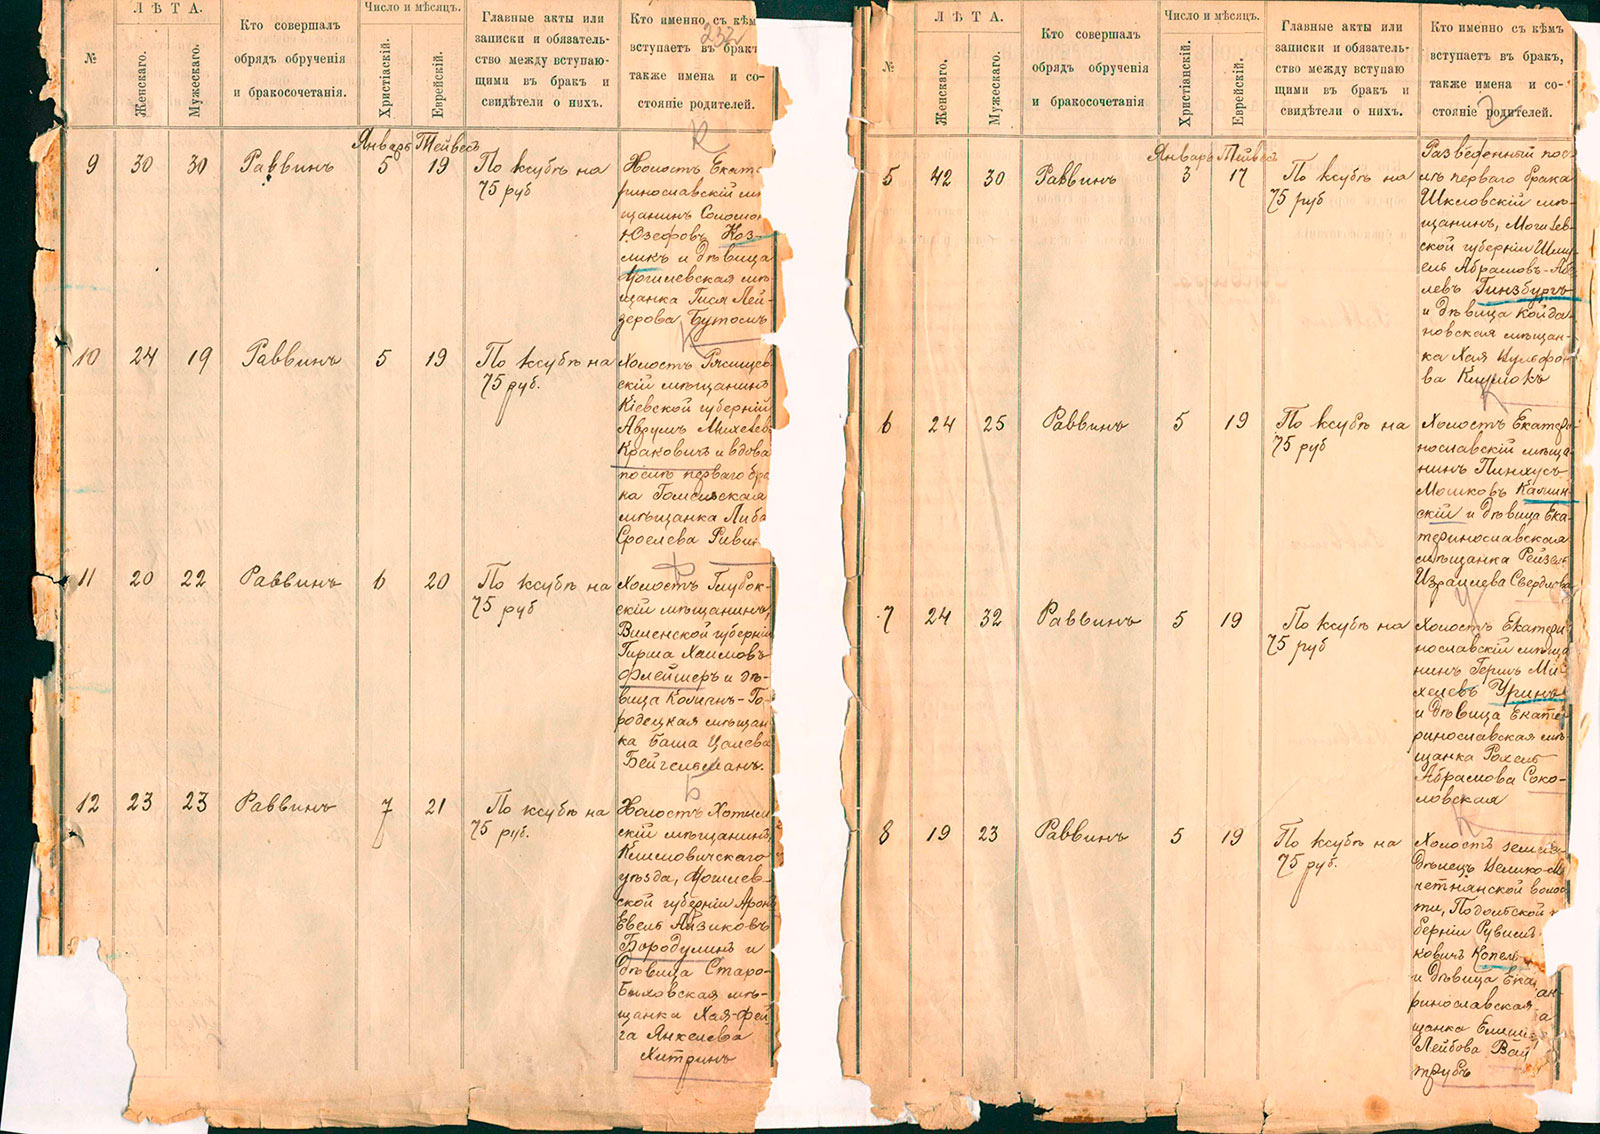 №
ЛѢТА.
Женскаго.
Мужескаго.
Кто совершалъ
обрядъ обрученія
и бракосочетанія.
Число и мѣсяцъ.
Христіаскій.
Еврейскій.
Главные акты или
записки и обязатель-
ство между вступаю-
щими въ бракъ и
свидѣтели о нихъ.
Кто именно съ кѣмъ
вступаетъ въ бракъ
также имена и со-
стояніе родителей.
232
К
Январь Тейвесъ
9 30 30 Раввинъ 5 19 По ксубѣ на
75 руб
Холостъ Екате
ринославскій мѣ
щанинъ Соломо
Юзефовъ Коз-
ликъ и дѣвица
Могилевская мѣ
щанка Гися Лей-
зерова Бутомъ
К
10 24 19 Раввинъ 5 19 По ксубѣ на
75 руб.
Холостъ Ржищев
скій мѣщанинъ
Кіевской губерніи
Абрумъ Михелев
Краковичъ и вдова
послѣ перваго бра
ка Гомельская
мѣщанка Либа
Сроелева
Ф
11 20 22 Раввинъ 6 20 По ксубѣ на
75 руб
Холостъ Глубок-
скій мѣщанинъ,
Виленской губерніи
Гирша Хаимовъ
Флейшеръ и дѣ-
вица
родецкая мѣщан
ка Баша Цалева
Бейгельманъ.
Б
12 23 23 Раввинъ 7 21 По ксубѣ на
75 руб.
Холостъ Хотим
скій мѣщанинъ
Климовичскаго
уѣзда, Могилев-
ской губерніи Аронъ
Евель Айзиковъ
Бородулинъ и
дѣвица Старо-
Быховская мѣ-
щанка Хая-Фей
га Янкелева
Хитринъ
№
ЛѢТА.
Женскаго.
Мужескаго.
Кто совершалъ
обрядъ обрученія
и бракосочетанія
Число и мѣсяцъ.
Христіанскій.
Еврейскій.
Главные акты или
записки и обязатель-
ство между вступаю
щими въ бракъ и
свидѣтели о нихъ.
Кто именно съ кѣмъ
вступаетъ въ бракъ,
также имена и со-
стояніе родителей.
Г
Январь Тейвесъ
5 42 30 Раввинъ 3 17 По ксубѣ на
75 руб
Разведенный пос
лѣ перваго брака
Шкловскій мѣ-
щанинъ, Могилев-
ской губерніи Шму
ель Абрамовъ-Абе
левъ Гинзбургъ
и дѣвица Койда-
новская мѣщан-
ка Хая Шульфор
ва Климокъ
К
6 24 25 Раввинъ 5 19 По ксубѣ на
75 руб
Холостъ Екатери
нославскій мѣща-
нинъ Пинхусъ
Мошковъ Калин-
скій и дѣвица Ека-
теринославская
мѣщанка Рейзель
Израилева Свердлова
У
7 24 32 Раввинъ 5 19 По ксубѣ на
75 руб
Холостъ Екатери
нославскій мѣща
нинъ Гершъ Ми-
хелевъ Уринъ
и дѣвица Екате
ринославская мѣ-
щанка Рохель
Абрамова Соко-
ловская
К
8 19 23 Раввинъ 5 19 По ксубѣ на
75 руб.
Холостъ земле-
дѣлецъ Велико-Ме
четнянской волос
ти, Подольской
берніи Рувинъ
ковичъ Копель
и дѣвица Ека
ринославская
щанка
Лейбова Вай
трубъ